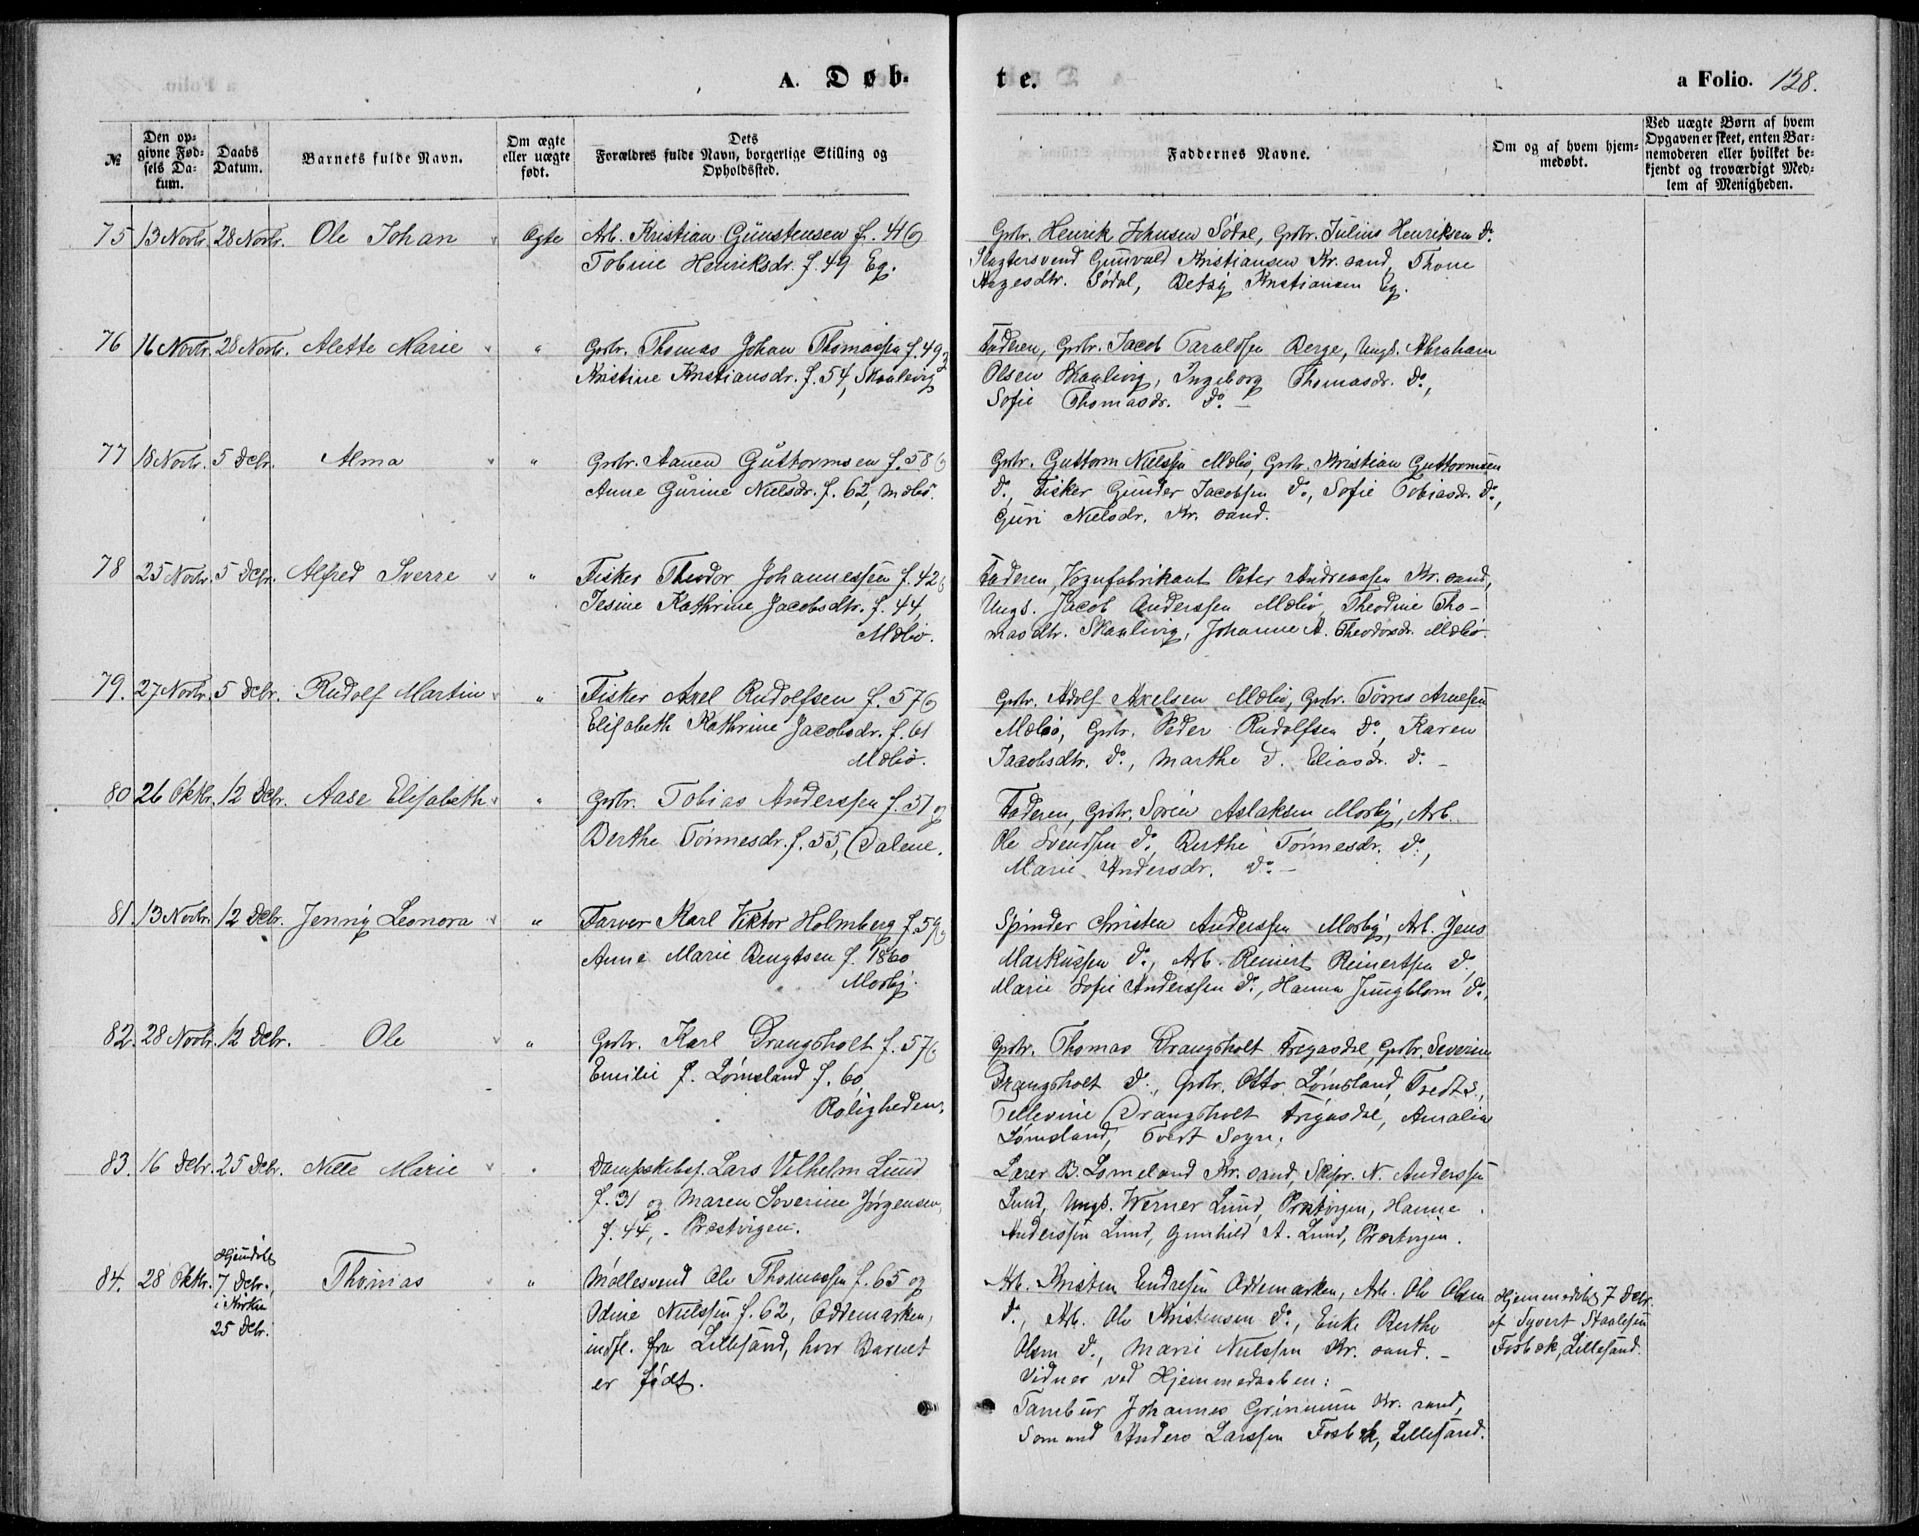 A. Døb-
te.
a Folio. 128.
№
Den op-
givne Fød-
sels Da-
tum.
Daabs
Datum.
Barnets fulde Navn.
Om ægte
eller uægte
født.
Dets
Forældres fulde Navn, borgerlige Stilling og
Opholdssted.
Faddernes Navne.
Om og af hvem hjem-
medøbt.
Ved uægte Børn af hvem
Opgaven er skeet, enten Bar-
nemoderen eller hvilket be-
kjendt og troværdigt Med-
lem af Menigheden.
75 13 Novbr. 28 Novbr. Ole Johan Ægte Arb. Kristian Gunstensen f. 46 og
Tobine Henriksdr. f. 49 Eg.
Grbr. Henrik Johnsen Sødal, Grbr. Julius Henriksen do.
Slagtersvend Gunvald Kristiansen Kr.sand, Thone
Aagesdtr. Sødal, Betsy Kristiansen Eg.
76 16 Novbr. 28 Novbr. Alette Marie " Grbr. Thomas Johan Thomassen f. 49 og
Kristine Kristiansdr. f. 54, Skaalevig
Faderen, Grbr. Jacob Taraldsen Berge, Ungk. Abraham
Olsen Skaalevig, Ingeborg Thomasdr. do.,
Sofie Thomasdr. do. –
77 18 Novbr. 5 Decbr. Alma " Grbr. Aanen Guttormsen f. 58 og
Anne Gurine Nielsdr. f. 62, Mæbø.
Grbr. Guttorm Nielssen Mæbø, Grbr. Kristian Guttormsen
do., Fisker Gunder Jacobsen do., Sofie Tobiasdr. do.,
Guri Nielsdr. Kr. sand.
78 25 Novbr. 5 Decbr. Alfred Sverre " Fisker Theodor Johannessen f. 42 og
Jesine Kathrine Jacobsdtr. f. 44,
Mæbø.
Faderen, Vognfabrikant Peter Andreassen Kr. sand,
Ungk. Jacob Anderssen Mæbø, Theodine Tho-
masdtr. Skaalevig, Johanne A. Theodorsdr. Mæbø.
79. 27 Novbr. 5 Decbr. Rudolf Martin " Fisker Axel Rudolfsen f. 57 og
Elisabeth Kathrine Jacobsdr. f. 61
Mæbø.
Grbr. Adolf Axelsen Mæbø, Grbr. Tørres Arnelsen
Mæbø, Grbr. Peder Rudolfsen do., Karen
Jacobsdtr. do., Marthe D. Eliasdr. do. –
80 26 Oktbr. 12 Decbr. Aase Elisabeth " Grbr. Tobias Anderssen f. 51 og
Berthe Tønnesdr. f. 55, Dalene.
Faderen, Grbr. Søren Aslaksen Mosby, Arb.
Ole Svendsen do., Berthe Tønnesdr. do.,
Marie Andersdr. do. –
81. 13 Novbr. 12 Decbr. Jenny Leonora " Farver Karl Viktor Holmberg f. 59 og
Anna Marie Bengtsen f. 1860
Mosby.
Spinder Christen Anderssen Mosby, Arb. Jens
Markussen do., Arb. Reinert Reinertsen do.
Marie Sofie Anderssen do., Hanna Jungblom do.,
82. 28 Novbr. 12 Decbr. Ole " Grbr. Karl Drangsholt f. 57 og
Emilie f. Lømsland f. 60,
Roligheden.
Grbr. Thomas Drangsholt Frigasdal, Grbr. Severin
Drangsholt do., Grbr. Otto Lømsland, Tvedt S.,
Tellevine Drangsholt Frigasdal, Amalia
Lømsland, Tvert Sogn.
83. 16 Decbr. 25 Decbr. Nille Marie " Dampskibsf. Lars Vilhelm Lund
f. 31 og Maren Severine Jørgensen,
f. 44, - Præstvigen.
Lærer B. Lømsland Kr. sand, Skipr. N. Anderssen
Lund, Ungk. Werner Lund, Præstvigen, Hanne
Anderssen Lund, Gunhild A. Lund, Præstvigen.
84. 28 Oktbr. Hjemdøbt
7 Decbr.,
i Kirken
25 Decbr. Thomas " Møllesvend Ole Thomassen f. 65 og
Odine Nielssen f. 62, Oddemarken,
indfl. fra Lillesand, hvor Barnet
er født.
Arb. Kristen Endresen Oddemarken, Arb. Ole Olsen
do., Arb. Ole Kristensen do., Enke Berthe
Olsen do., Marie Nielssen Kr. sand. –
Vidner ved Hjemmedaaben:
Tambur Johannes Grimmen Kr. sand,
Sømand Anders Larssen Fosbæk, Lillesand.
Hjemmedøbt 7 Decbr.
af Syvert Staalesen
Fosbæk, Lillesand.